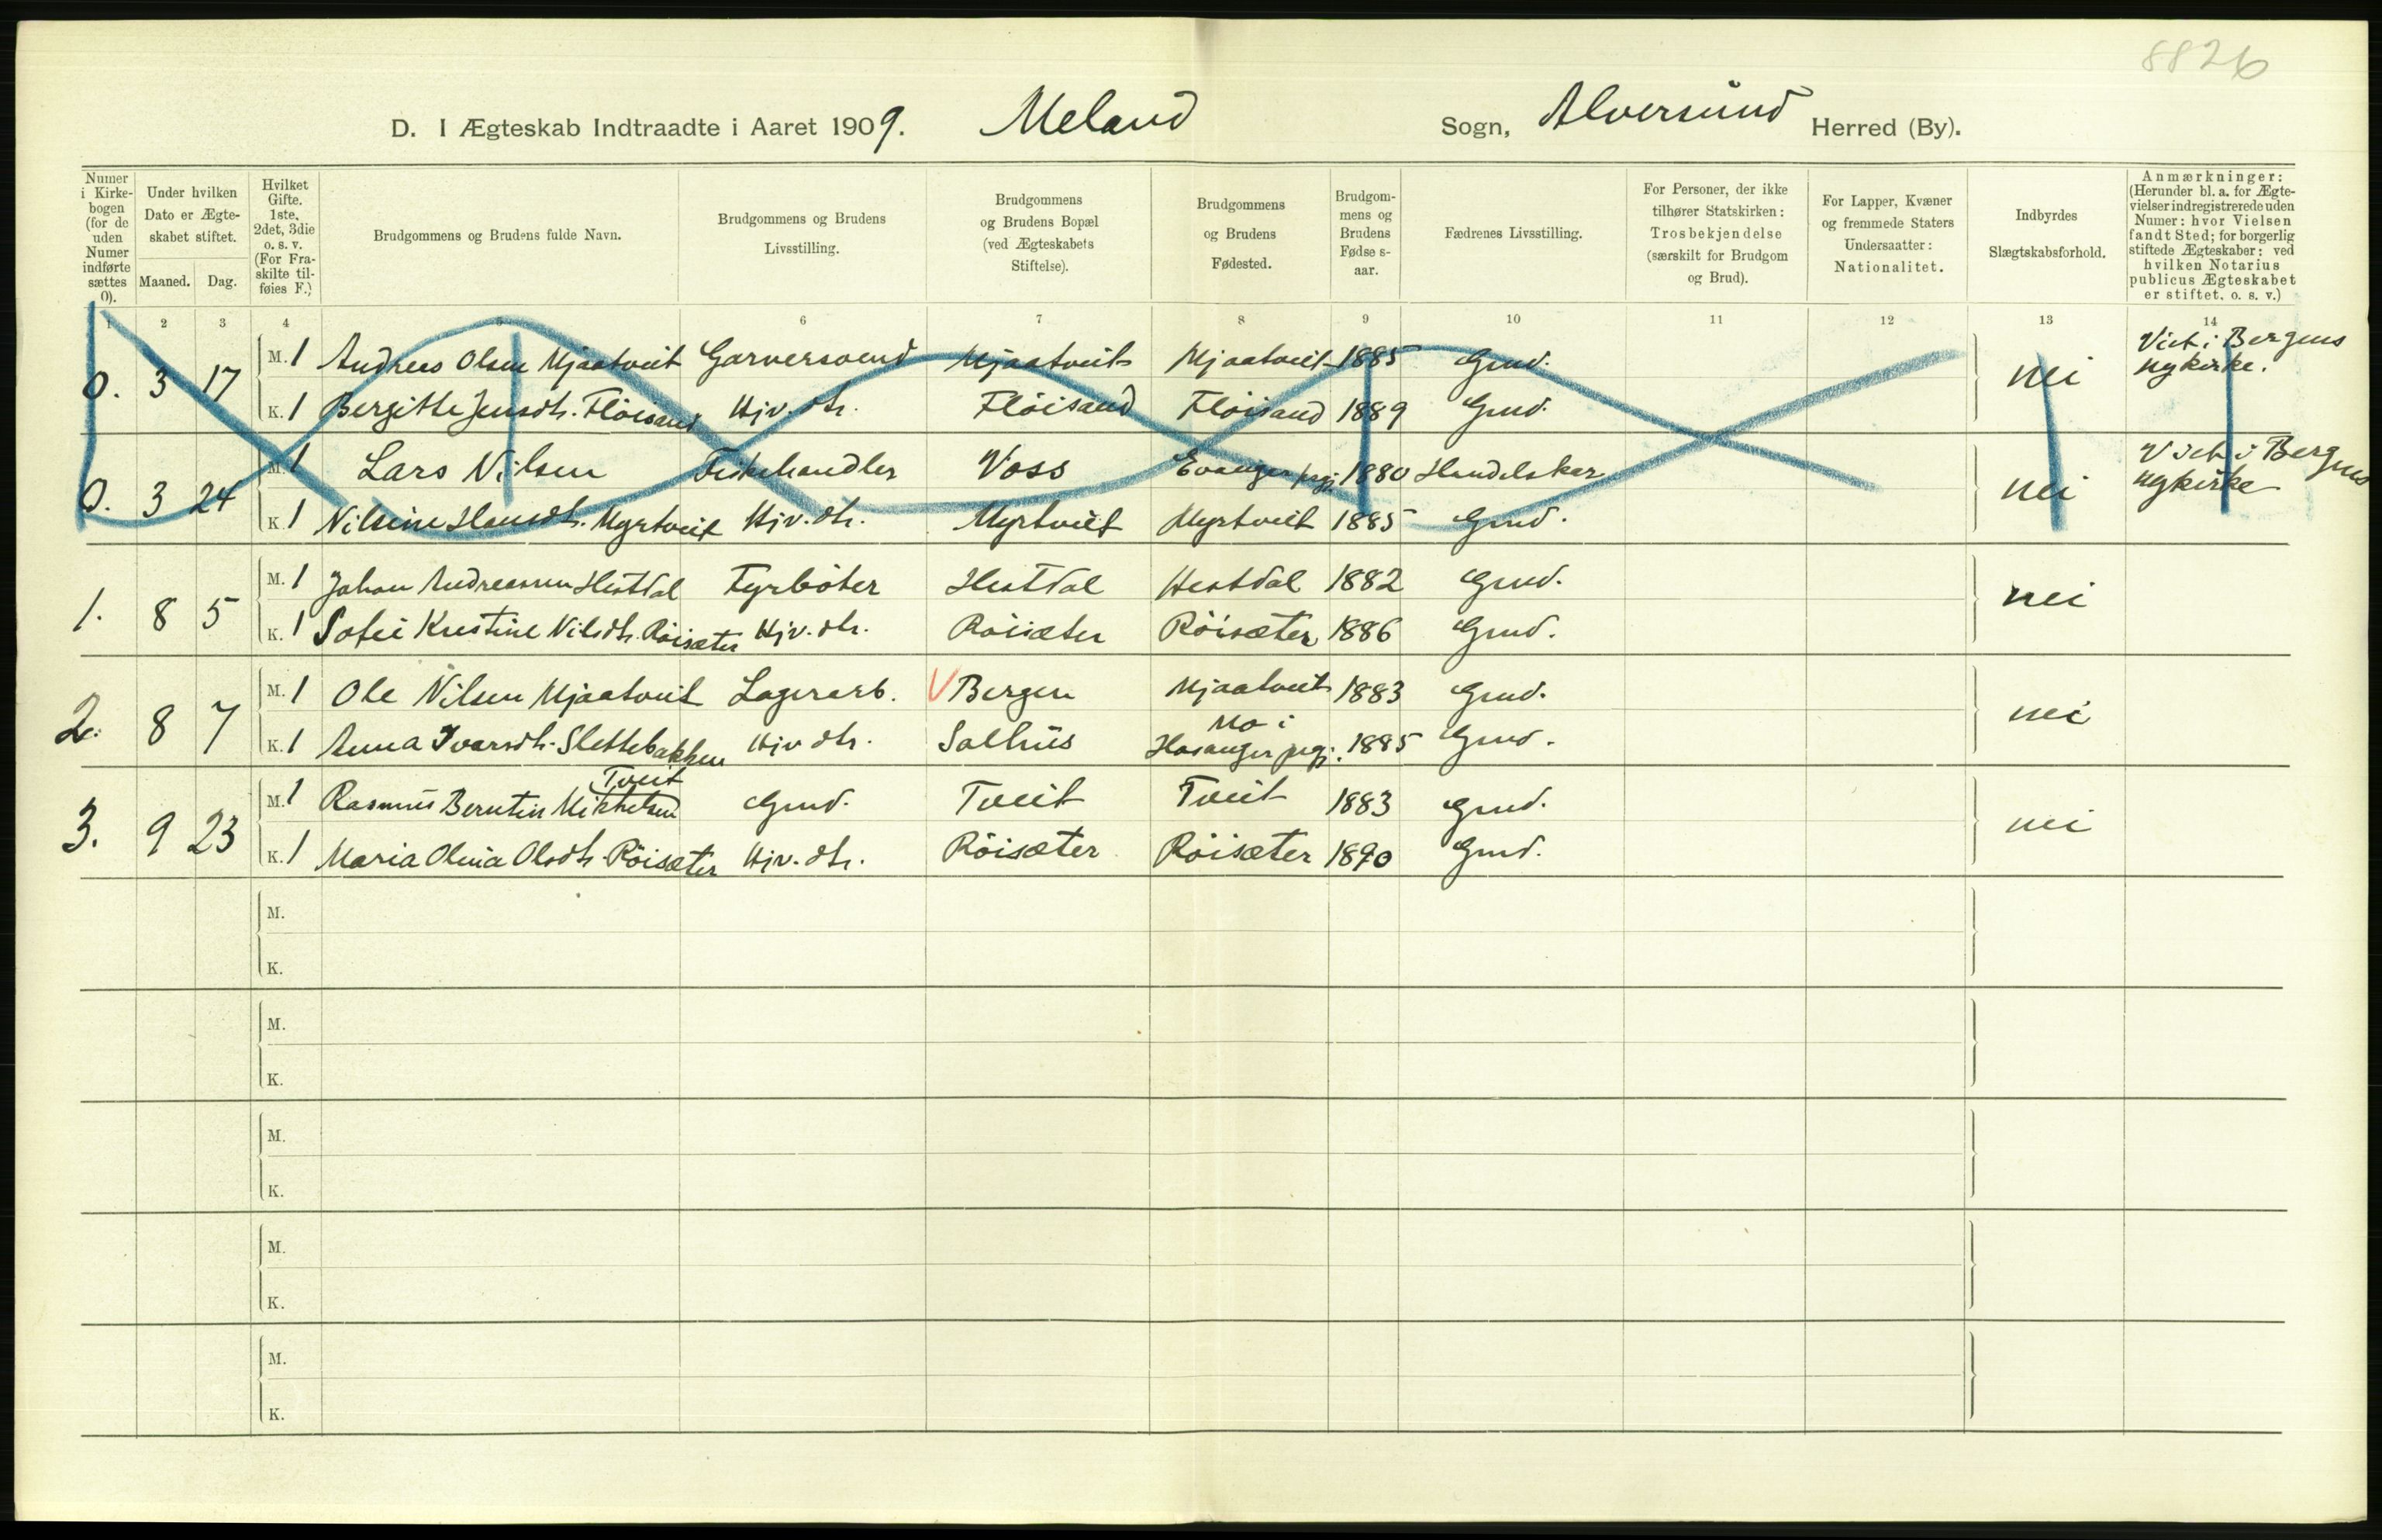 8826
D. I Ægteskab Indtraadte i Aaret 1909. Meland Sogn, Alversund Herred (By).
Numer i Kirke-bogen (for de uden Numer indførte sættes 0).
Under hvilken Dato er Ægte-skabet stiftet.
Maaned. Dag.
Hvilket Gifte. 1ste, 2det, 3die o. s. v. (For Fra-skilte til-føies F.)
Brudgommens og Brudens fulde Navn.
Brudgommens og Brudens Livsstilling.
Brudgommens og Brudens Bopæl (ved Ægteskabets Stiftelse).
Brudgommens og Brudens Fødested.
Brudgom-mens og Brudens Fødse s-aar.
Fædrenes Livsstilling.
For Personer, der ikke tilhører Statskirken: Trosbekjendelse (særskilt for Brudgom og Brud).
For Lapper, Kvæner og fremmede Staters Undersaatter: Nationalitet.
Indbyrdes Slægtskabsforhold.
Anmærkninger: (Herunder bl. a. for Ægte-vielser indregistrerede uden Numer: hvor Vielsen fandt Sted; for borgerlig stiftede Ægteskaber: ved hvilken Notarius publicus Ægteskabet er stiftet, o. s. v.)
1 2 3 4 5 6 7 8 9 10 11 12 13 14
0. 3 17 M. 1 Andreas Olsen Mjaatveit Garversvend Mjaatveit Mjaatveit 1885 Grud. nei Viet i Bergens nykirke.
K. 1 Bergitte Jensdtr. Flöisand Hjv. dtr. Flöisand Flöisand 1889 Grud.
0. 3 24 M. 1 Lars Nilsen Fiskehandler Voss Evanger prgj. 1880 Handelskar nei Viet i Bergens nykirke
K. 1 Nilsine Hansdtr. Myrtveit Hjv. dtr. Myrtveit Myrtveit 1885 Grud.
1. 8 5 M. 1 Johan Andreassen Hestdal Fyrböter Hestdal Hestdal 1882 Grud. nei
K. 1 Sofie Kristine Nilsdtr. Röisæter Hjv. dtr. Röisæter Röisæter 1886 Grud.
2. 8 7 M. 1 Ole Nilsen Mjaatveit Lagerarb. V Bergen Mjaatveit 1883 Grud. nei
K. 1 Anna Ivarsdtr. Slettebakken Hjv dtr. Salhus Mo i Hosanger prgj. 1885 Grud.
3. 9 23 M. 1 Rasmus Berntin Mikkelsen Tveit Grud. Tveit Tveit 1883 Grud. nei
K. 1 Maria Olina Olsdtr. Röisæter Hjv. dtr. Röisæter Röisæter 1890 Grud.
M.
K.
M.
K.
M.
K.
M.
K.
M.
K.